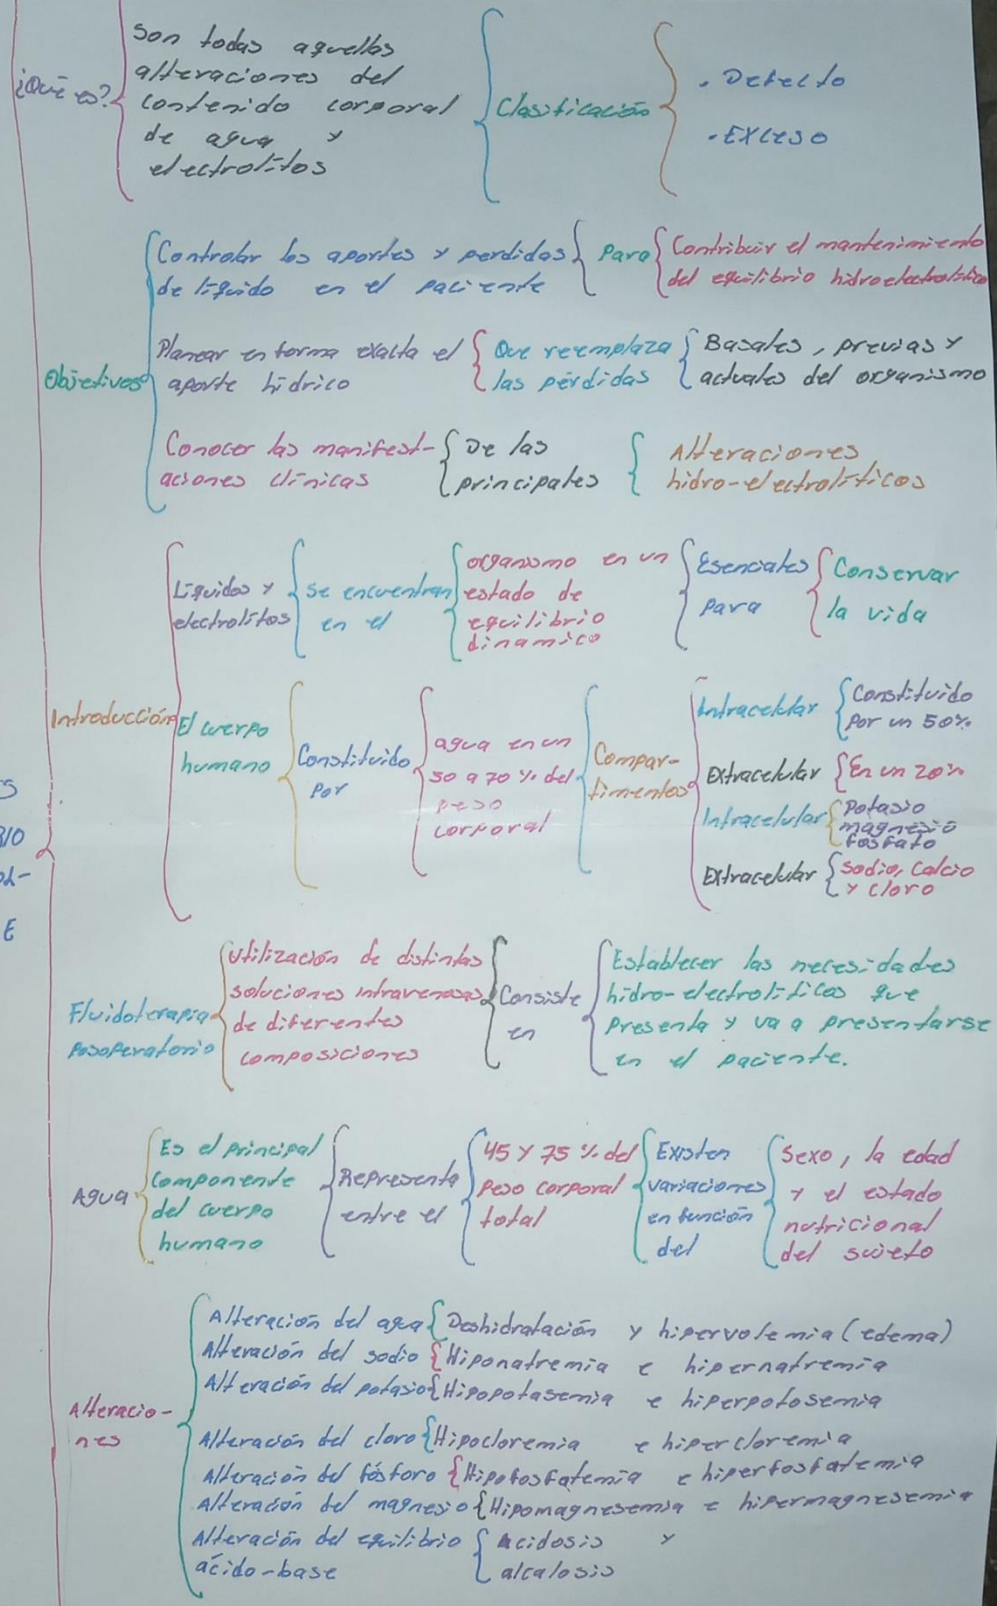 ¿Qué es?
Son todas aquellas
alteraciones del
contenido corporal
de agua y
electrolitos
Clasificación
• Defecto
• Exceso
Objetivos
Controlar los aportes y perdidas
de líquido en el paciente
Para
Contribuir el mantenimiento
del equilibrio hidroelectrolítico
Planear en forma exacta el
aporte hídrico
Que reemplaza
las pérdidas
Basales, previas y
actuales del organismo
Conocer las manifest-
aciones clínicas
De las
principales
Alteraciones
hidro-electrolíticos
Introducción
Líquidos y
electrolitos
se encuentran
en el
organismo en un
estado de
equilibrio
dinamico
Esenciales
para
Conservar
la vida
El cuerpo
humano
Constituido
por
agua en un
50 a 70 % del
peso
corporal
Compar-
timentos
Intracelular
Constituido
Por un 50%
Extracelular
En un 20%
Intracelular
Potasio
magnesio
fosfato
Extracelular
sodio, calcio
y cloro
S
RIO
OL-
E
Fluidoterapia
Posoperatorio
Utilización de distintas
soluciones intravenosas
de diferentes
composiciones
Consiste
en
Establecer las necesidades
hidro-electrolíticos que
Presenta y va a presentarse
en el paciente.
Agua
Es el principal
componente
del cuerpo
humano
Representa
entre el
45 y 75 % del
peso corporal
total
Existen
variaciones
en función
del
sexo, la edad
y el estado
nutricional
del sujeto
Alteracio-
nes
Alteración del agua
Deshidratación y hipervolemia (edema)
Alteración del sodio
Hiponatremia e hipernatremia
Alteración del potasio
Hipopotasemia e hiperpotasemia
Alteración del cloro
Hipocloremia e hipercloremia
Alteración del fósforo
Hipofosfatemia e hiperfosfatemia
Alteración del magnesio
Hipomagnesemia e hipermagnesemia
Alteración del equilibrio
ácido-base
acidosis y
alcalosis